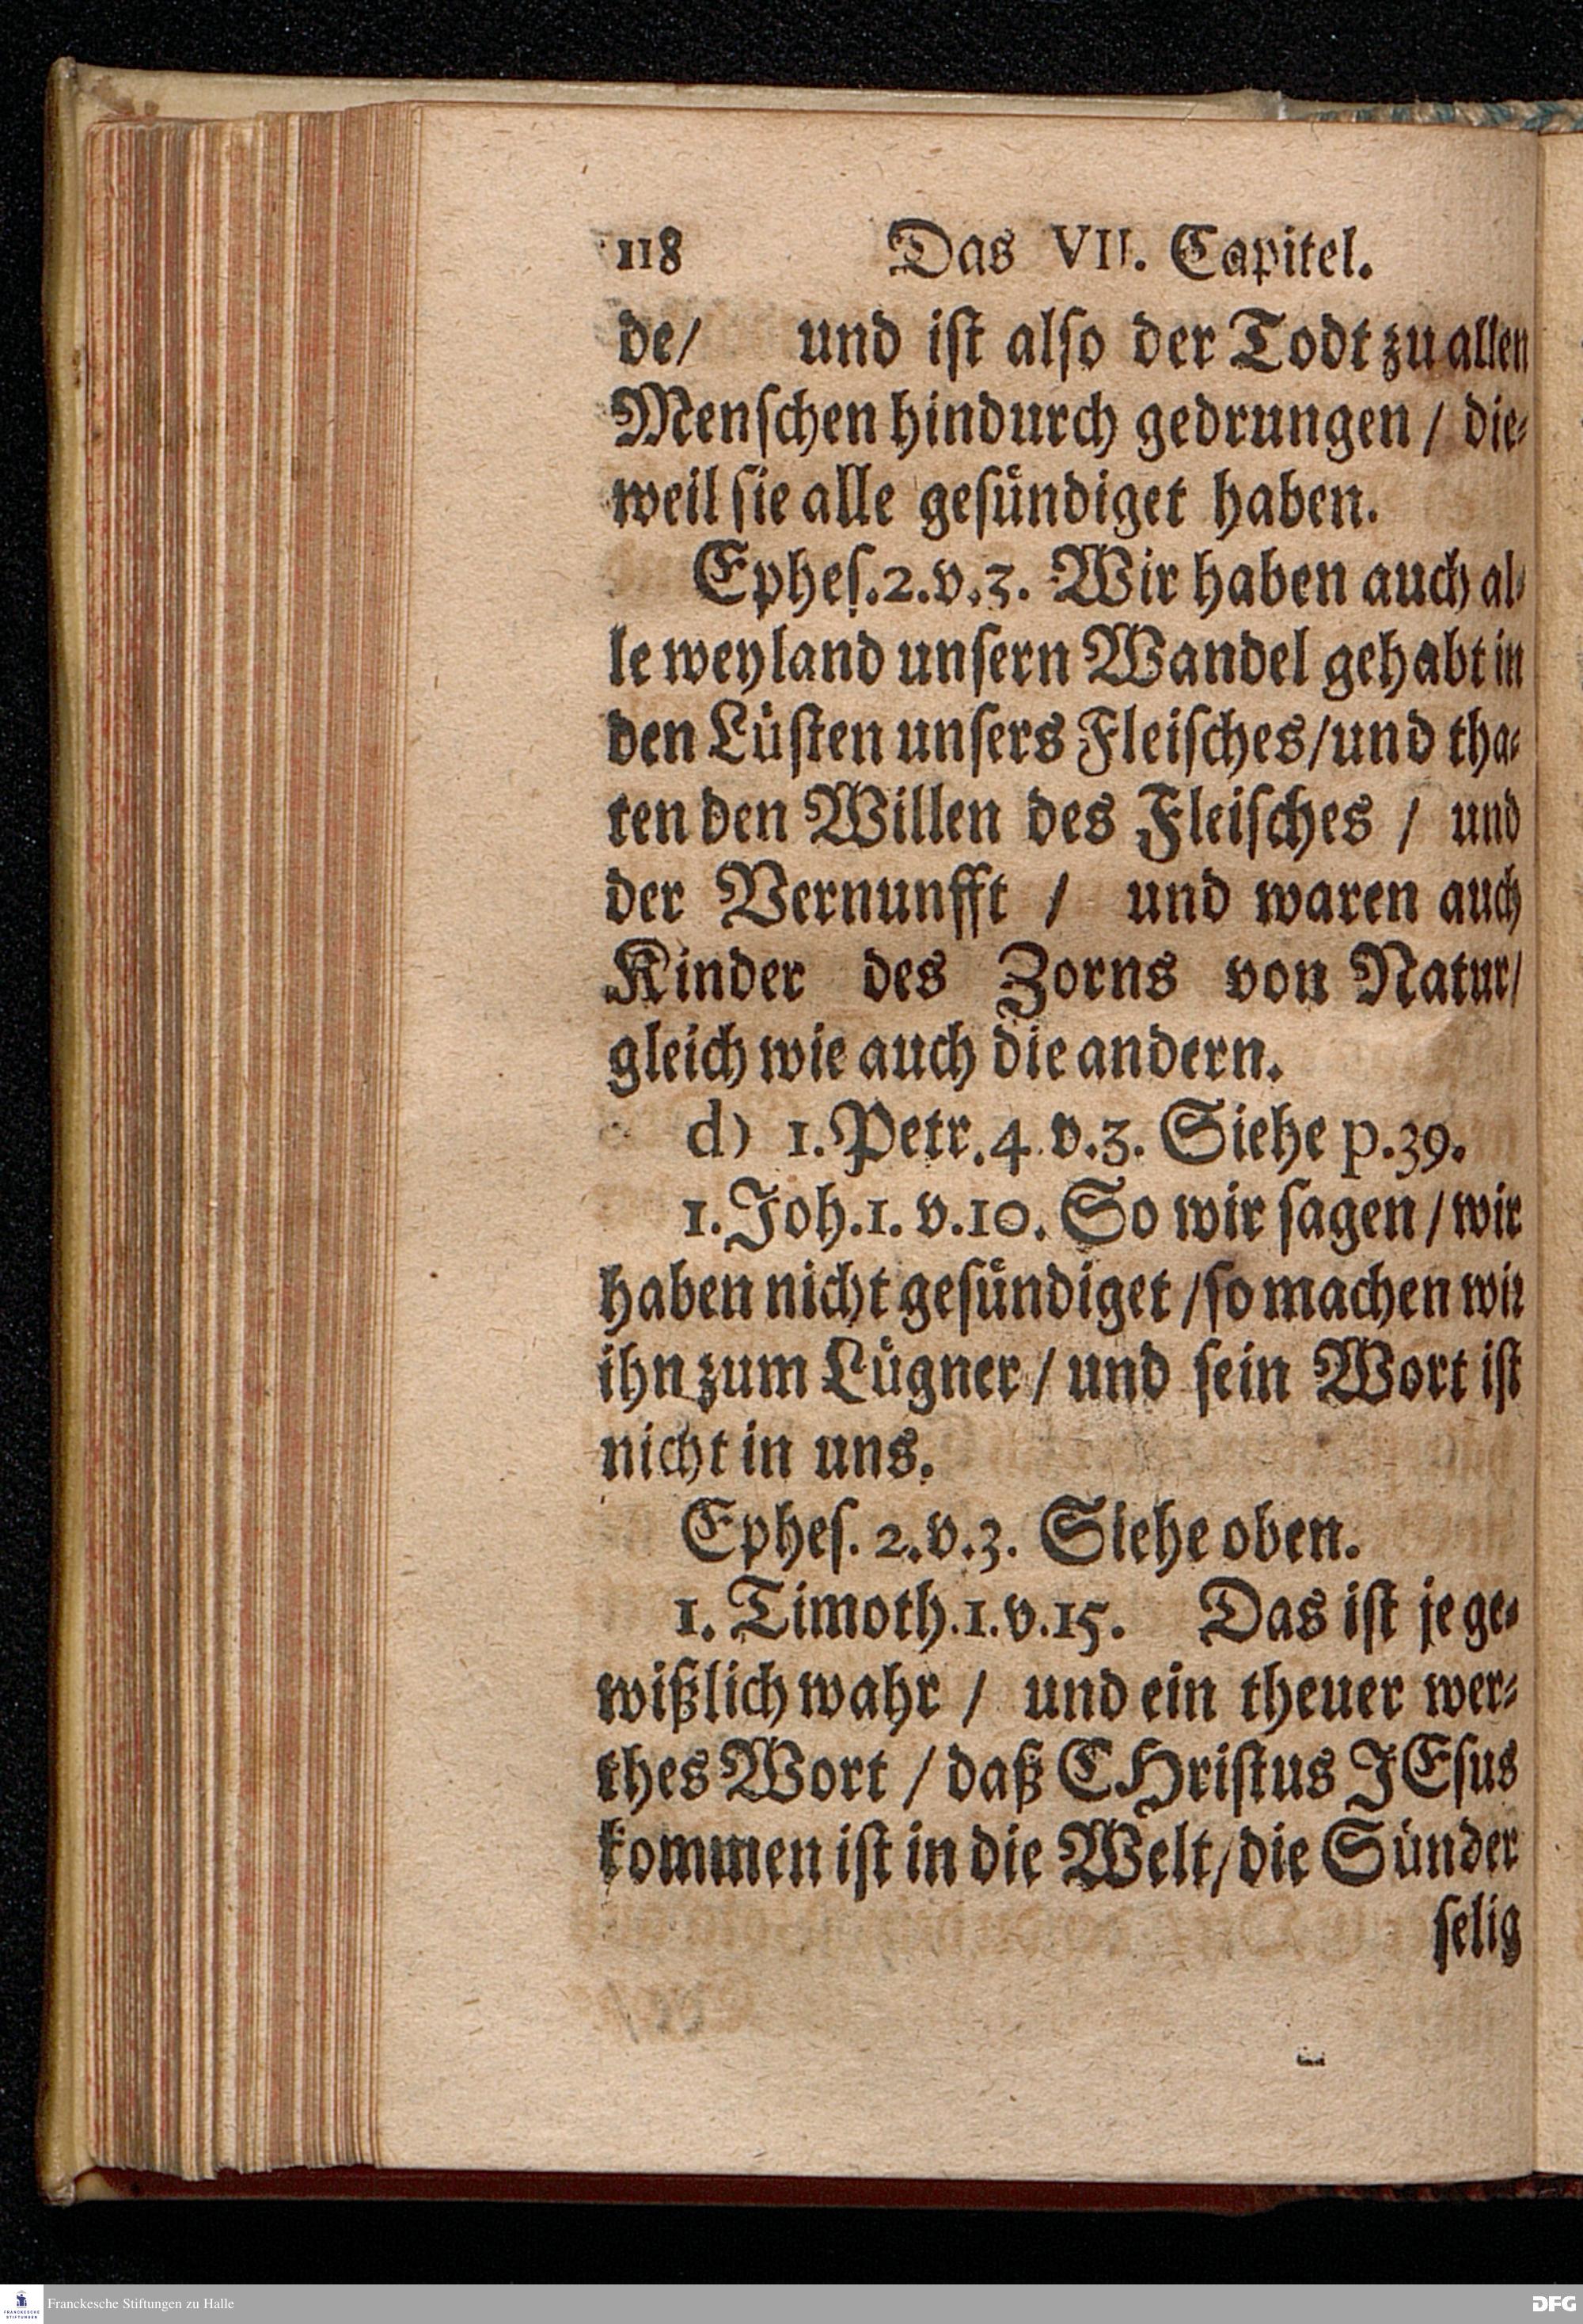 118 Das VII. Capitel.
de/ und iſt alſo der Todt zu allen
Menſchen hindurch gedrungen / die⸗
weil ſie alle geſuͤndiget haben.
Epheſ.2.v.3. Wir haben auch al⸗
le weyland unſern Wandel gehabt in
den Luͤſten unſers Fleiſches/und tha⸗
ten den Willen des Fleiſches / und
der Vernunfft / und waren auch
Kinder des Zorns von Natur/
gleich wie auch die andern.
d) 1.Petr.4.v.3. Siehe p.39.
1.Joh.1.v.10. So wir ſagen/wir
haben nicht geſuͤndiget /ſo machen wir
ihn zum Luͤgner/und ſein Wort iſt
nicht in uns.
Epheſ. 2.v.3. Siehe oben.
1. Timoth.1.v.15. Das iſt je ge⸗
wißlich wahr / und ein theuer wer⸗
thes Wort / daß CHriſtus JEſus
kommen iſt in die Welt/die Suͤnder
ſelig
FRANCKESCHE STIFTUNGEN
Franckesche Stiftungen zu Halle
DFG